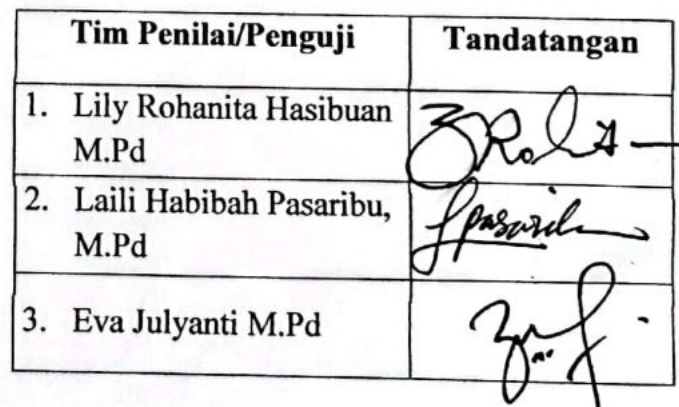 Tim Penilai/Penguji Tandatangan
1. Lily Rohanita Hasibuan
M.Pd
2. Laili Habibah Pasaribu,
M.Pd
3. Eva Julyanti M.Pd